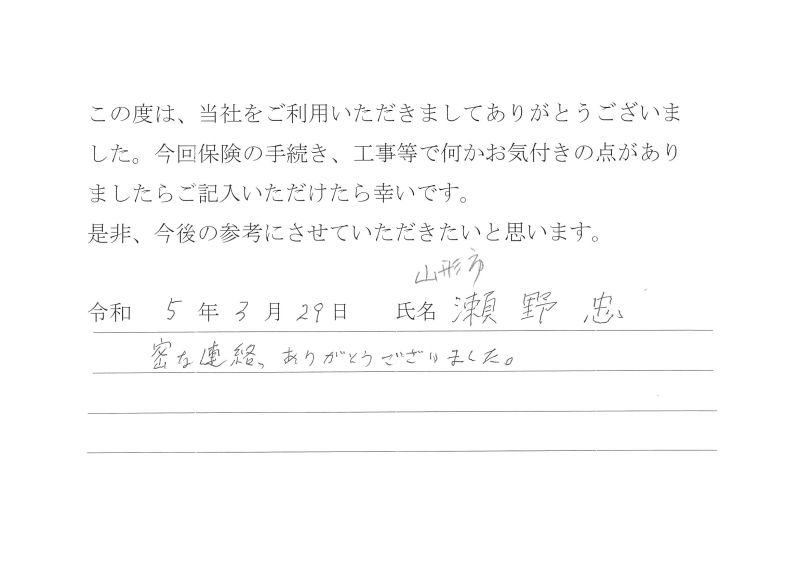 この度は、当社をご利用いただきましてありがとうございま
した。今回保険の手続き、工事等で何かお気付きの点があり
ましたらご記入いただけたら幸いです。
是非、今後の参考にさせていただきたいと思います。
山形市
令和 5 年 3 月 29 日 氏名 瀬野 忠
密な連絡、ありがとうございました。